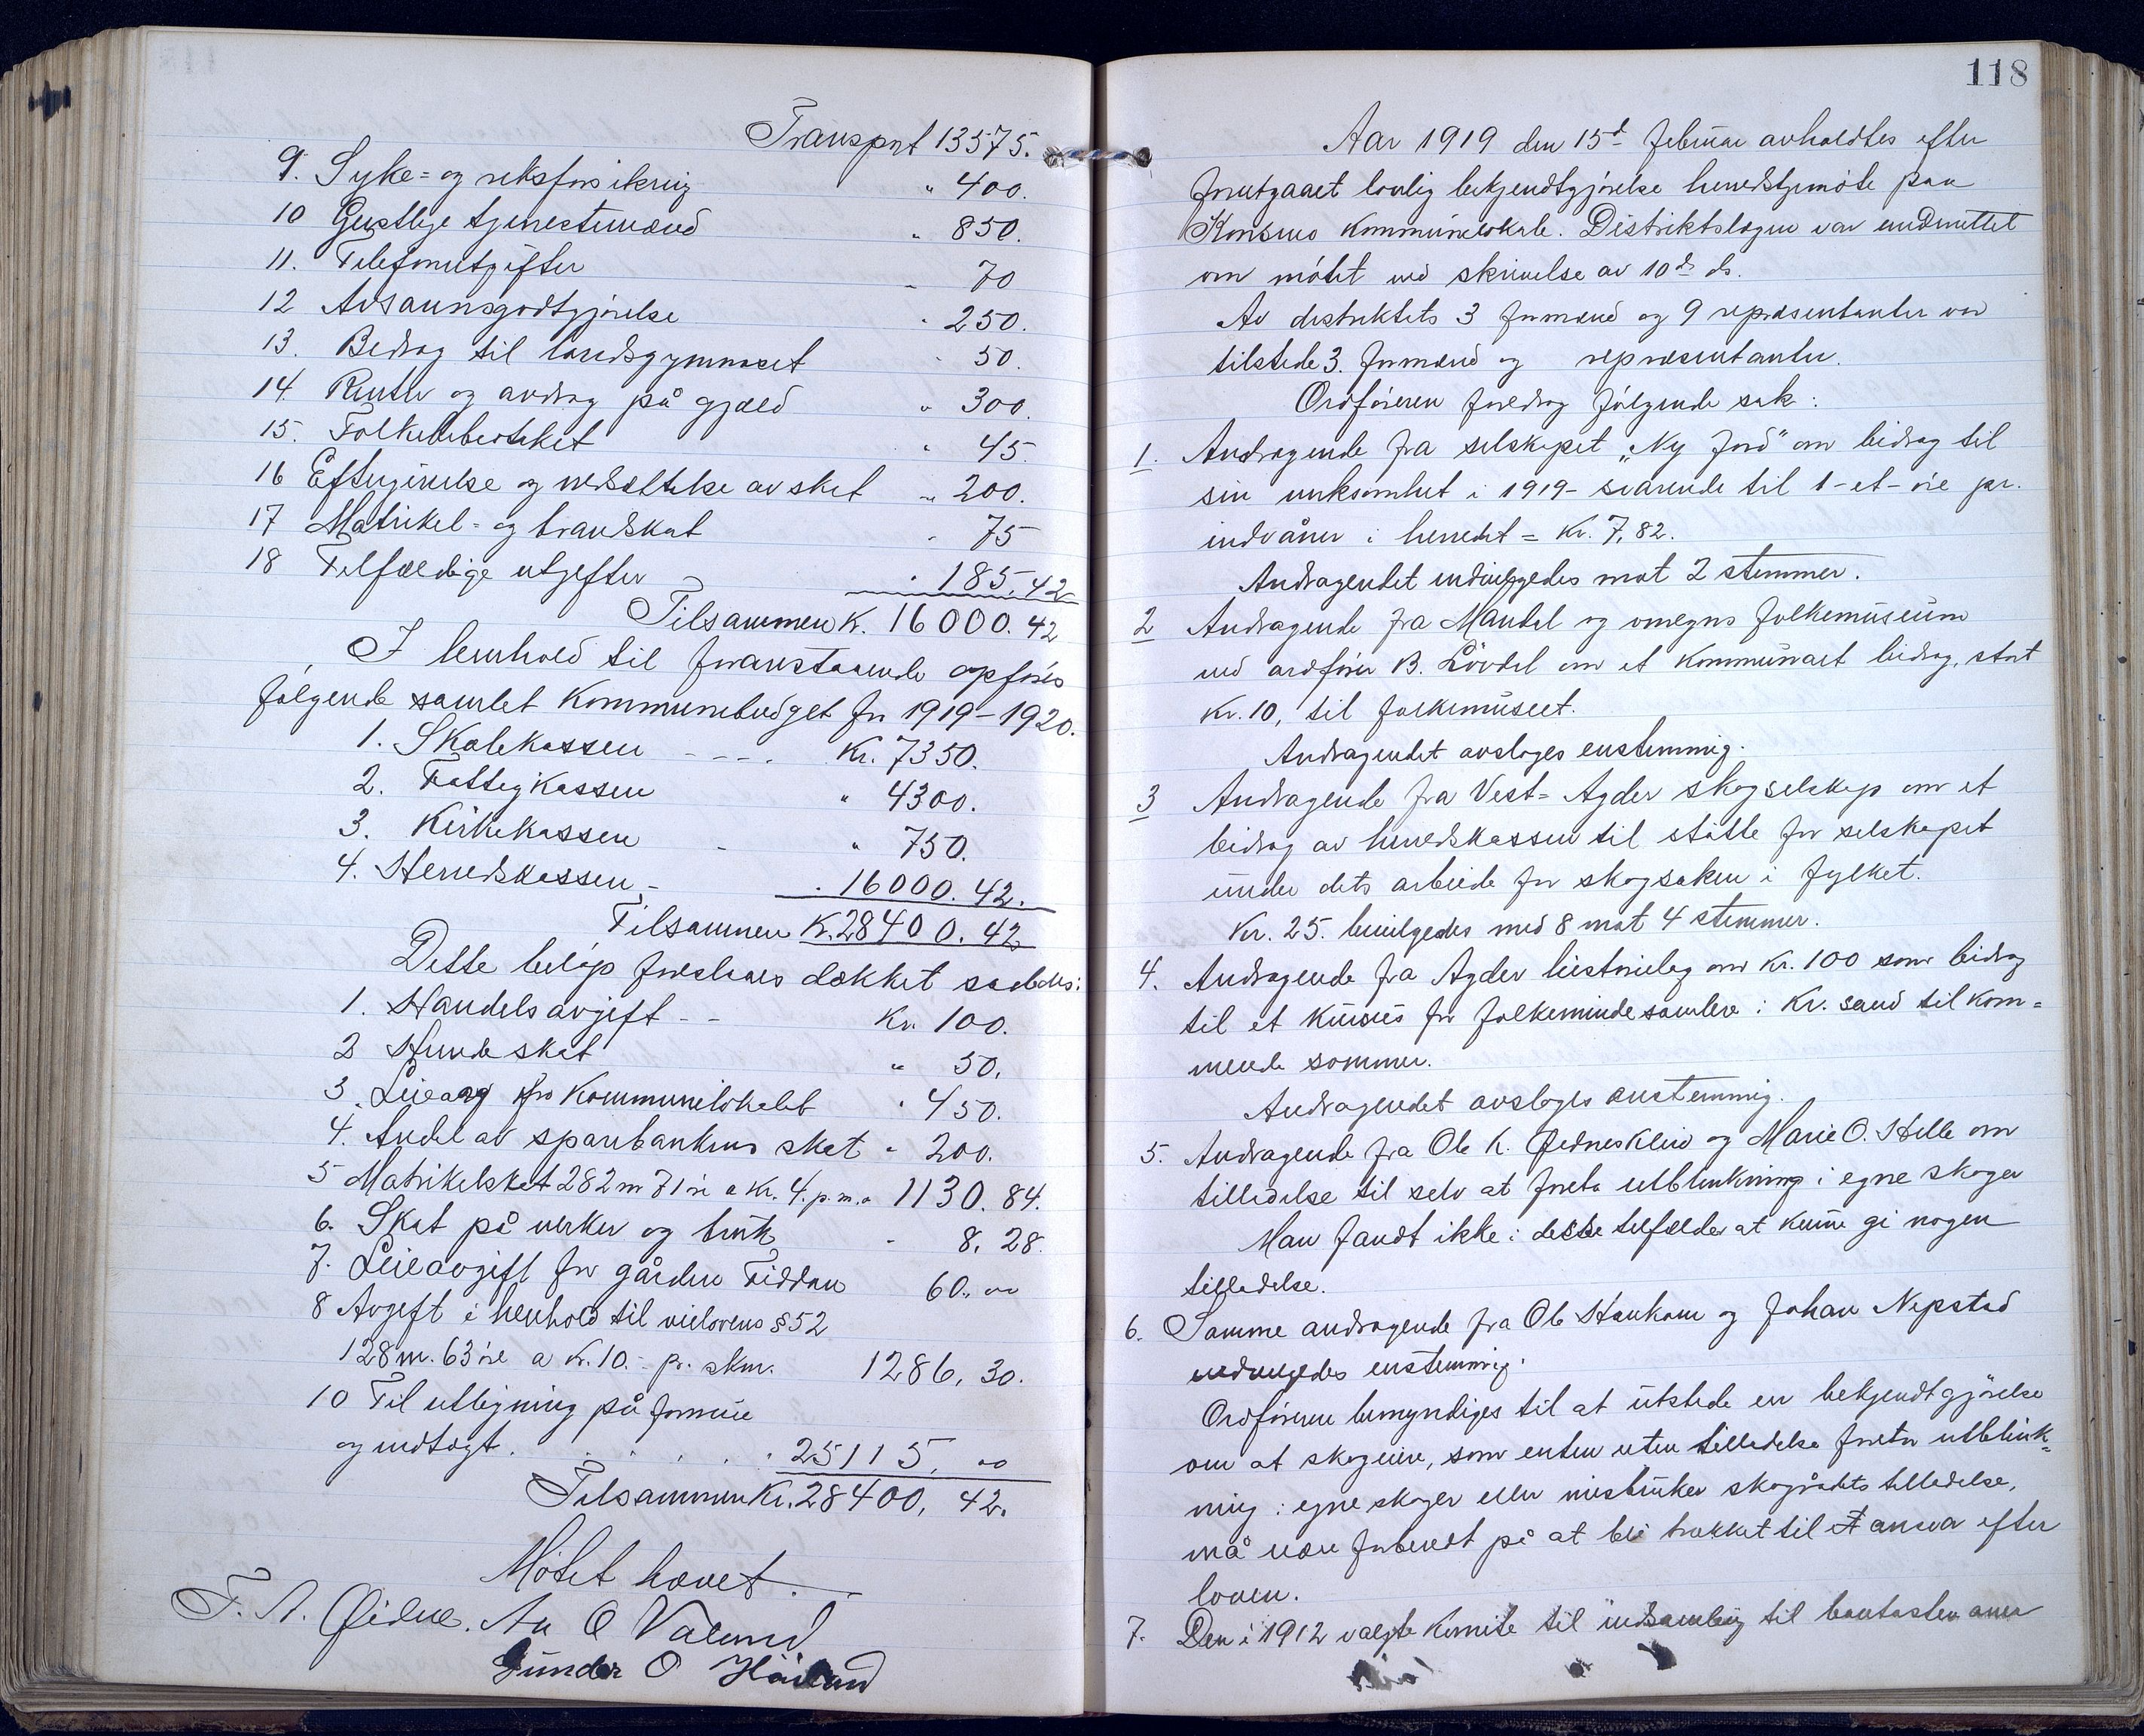 Transport 13575.
9. Syke- og riksforsikring " 400.
10 Geistlige tjenestemænd " 850.
11. Telefonutgifter " 70
12 Avsavnsgodtgjørelse " 250.
13. Bidrag til landsgymnaset " 50.
14. Renter og avdrag på gjæld " 300.
15. Folkebiblioteket " 45
16 Eftergivelse og nedsættelse av skat " 200.
17 Matrikel- og brandskat " 75
18 Tilfældige utgifter " 185.42
Tilsammen K. 16000.42
I henhold til foranstaaende opføres
følgende samlet Kommunebudget for 1919-1920.
1. Skolekassen - - - Kr. 7350.
2. Fattigkassen " 4300.
3. Kirkekassen " 750.
4. Herredskassen - " 16000.42.
Tilsammen K. 28400.42
Dette beløp foreslaaes dækket saaledes:
1. Handelsavgift - - Kr. 100.
2 Hundeskat " 50.
3. Leie av Kommunelokalet " 450.
4. Andel av sparebankens skat " 200.
5 Matrikelskat 282 m 71 øre a Kr. 4. p. m. " 1130.84.
6. Skat på verker og bruk " 8.28.
7. Leieavgift for gården Fiddan 60."
8 Avgift i henhold til veilovens § 52
128 m. 63 øre a Kr. 10.- pr. skm. 1286,30.
10 Til utligning på formue
og indtægt . . . . . 25115,"
Tilsammen Kr. 28400,42.
Møtet hævet.
T. A. Øidne. An O Valand
Gunder O Høiland
118
Aar 1919 den 15d februar avholdtes efter
forutgaaet lovlig bekjendtgjørelse herredstyremøte paa
Konsmo Kommunelokale. Distriktslægen var underrettet
om møtet ved skrivelse av 10ds ds.
Av distriktets 3 formænd og 9 repræsentanter var
tilstede 3. formænd og repræsentanter.
Ordføreren foredrog følgende sak:
1. Andragende fra selskapet "Ny Jord" om bidrag til
sin virksomhet i 1919 - svarende til 1 - et - øre pr.
indvåner i herredet = Kr. 7,82.
Andragendet indvilgedes mot 2 stemmer.
2 Andragende fra Mandal og omegns folkemuseum
ved ordfører B. Løvdal om et kommunalt bidrag, stort
Kr. 10, til folkemuseet.
Andragendet avsloges enstemmig.
3 Andragende fra Vest-Agder skogselskap om et
bidrag av herredskassen til støtte for selskapet
under dets arbeide for skogsaken i fylket.
Kr. 25. bevilgedes med 8 mot 4 stemmer.
4. Andragende fra Agder historielag om Kr. 100 som bidrag
til et kursus for folkemindesamlere i Kr. sand til kom=
mende sommer.
Andragendet avsloges enstemmig.
5. Andragende fra Ole K. Øidneskleiv og Marie O. Helle om
tilladelse til selv at foreta utblinkning i egne skoger
Man fandt ikke i disse tilfælder at kunne gi nogen
tilladelse.
6. Samme andragende fra Ole Haukom og Johan Nepstad
indvilgedes enstemmig.
Ordføreren bemyndiges til at utstede en bekjendtgjørelse
om at skogeiere, som enten uten tilladelse foretar utblink=
ning i egne skoger eller misbruker skogrådets tilladelse,
må være forberedt på at bli trukket til ansvar efter
loven.
7. Den i 1912 valgte komite til indsamling til bautasten over